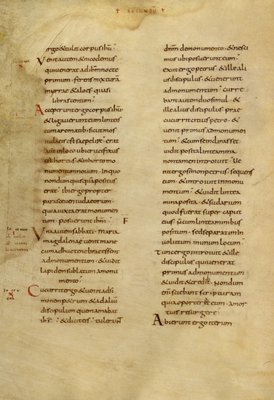 SECUNDU
ergo & tulit corpus ihu·
Venit autem & nicodemus
qui uenerat ad ihm nocte
primum· ferens mixturam
myrrae & aloes quasi
libras centum·
Acceperunt ergo corpus ihu
& ligauerunt eum linteis
cum aromatibus sicut mos
iudaeis est sepelire· erat
autem in loco ubi crucifixus
est hortus & in horto mo
numentum nouum· in quo
nondum quisquam positus
erat· ibi ergo propter
parasceuen iudaeorum
quia iuxta erat monumen
tum posuerunt ihm·
Una autem sabbati· maria
magdalenae uenit mane
cum adhuc tenebrae essent
ad monumentum & uidit
lapidem sublatum a monu
mento·
Cucurrit ergo & uenit ad si
monem petrum & ad alium
discipulum quem amabat
ihs· & dicit eis· tulerunt
dnm de monumento· & nesci
mus ubi posuerunt eum·
exiit ergo petrus & ille ali
us discipulus· & uenerunt
ad monumentum· curre
bant autem duo simul· &
ille alius discipulus prae
cucurrit citius petro· &
uenit primus ad monumen
tum· & cum se inclinasset
uidit posita linteamina·
non tamen introiuit· Ue
nit ergo simon petrus sequens
eum· & introiuit in monu
mentum· & uidit lintea
mina posita· & sudarium
quod fuerat super caput
eius· non cum linteaminibus
positum· sed separatim in
uolutum in unum locum·
Tunc ergo introiuit & ille
discipulus qui uenerat
primus ad monumentum·
& uidit & credidit· Nondum
enim sciebant scripturam
quia oportet eum· a mor
tuis resurgere·
Abierunt ergo iterum